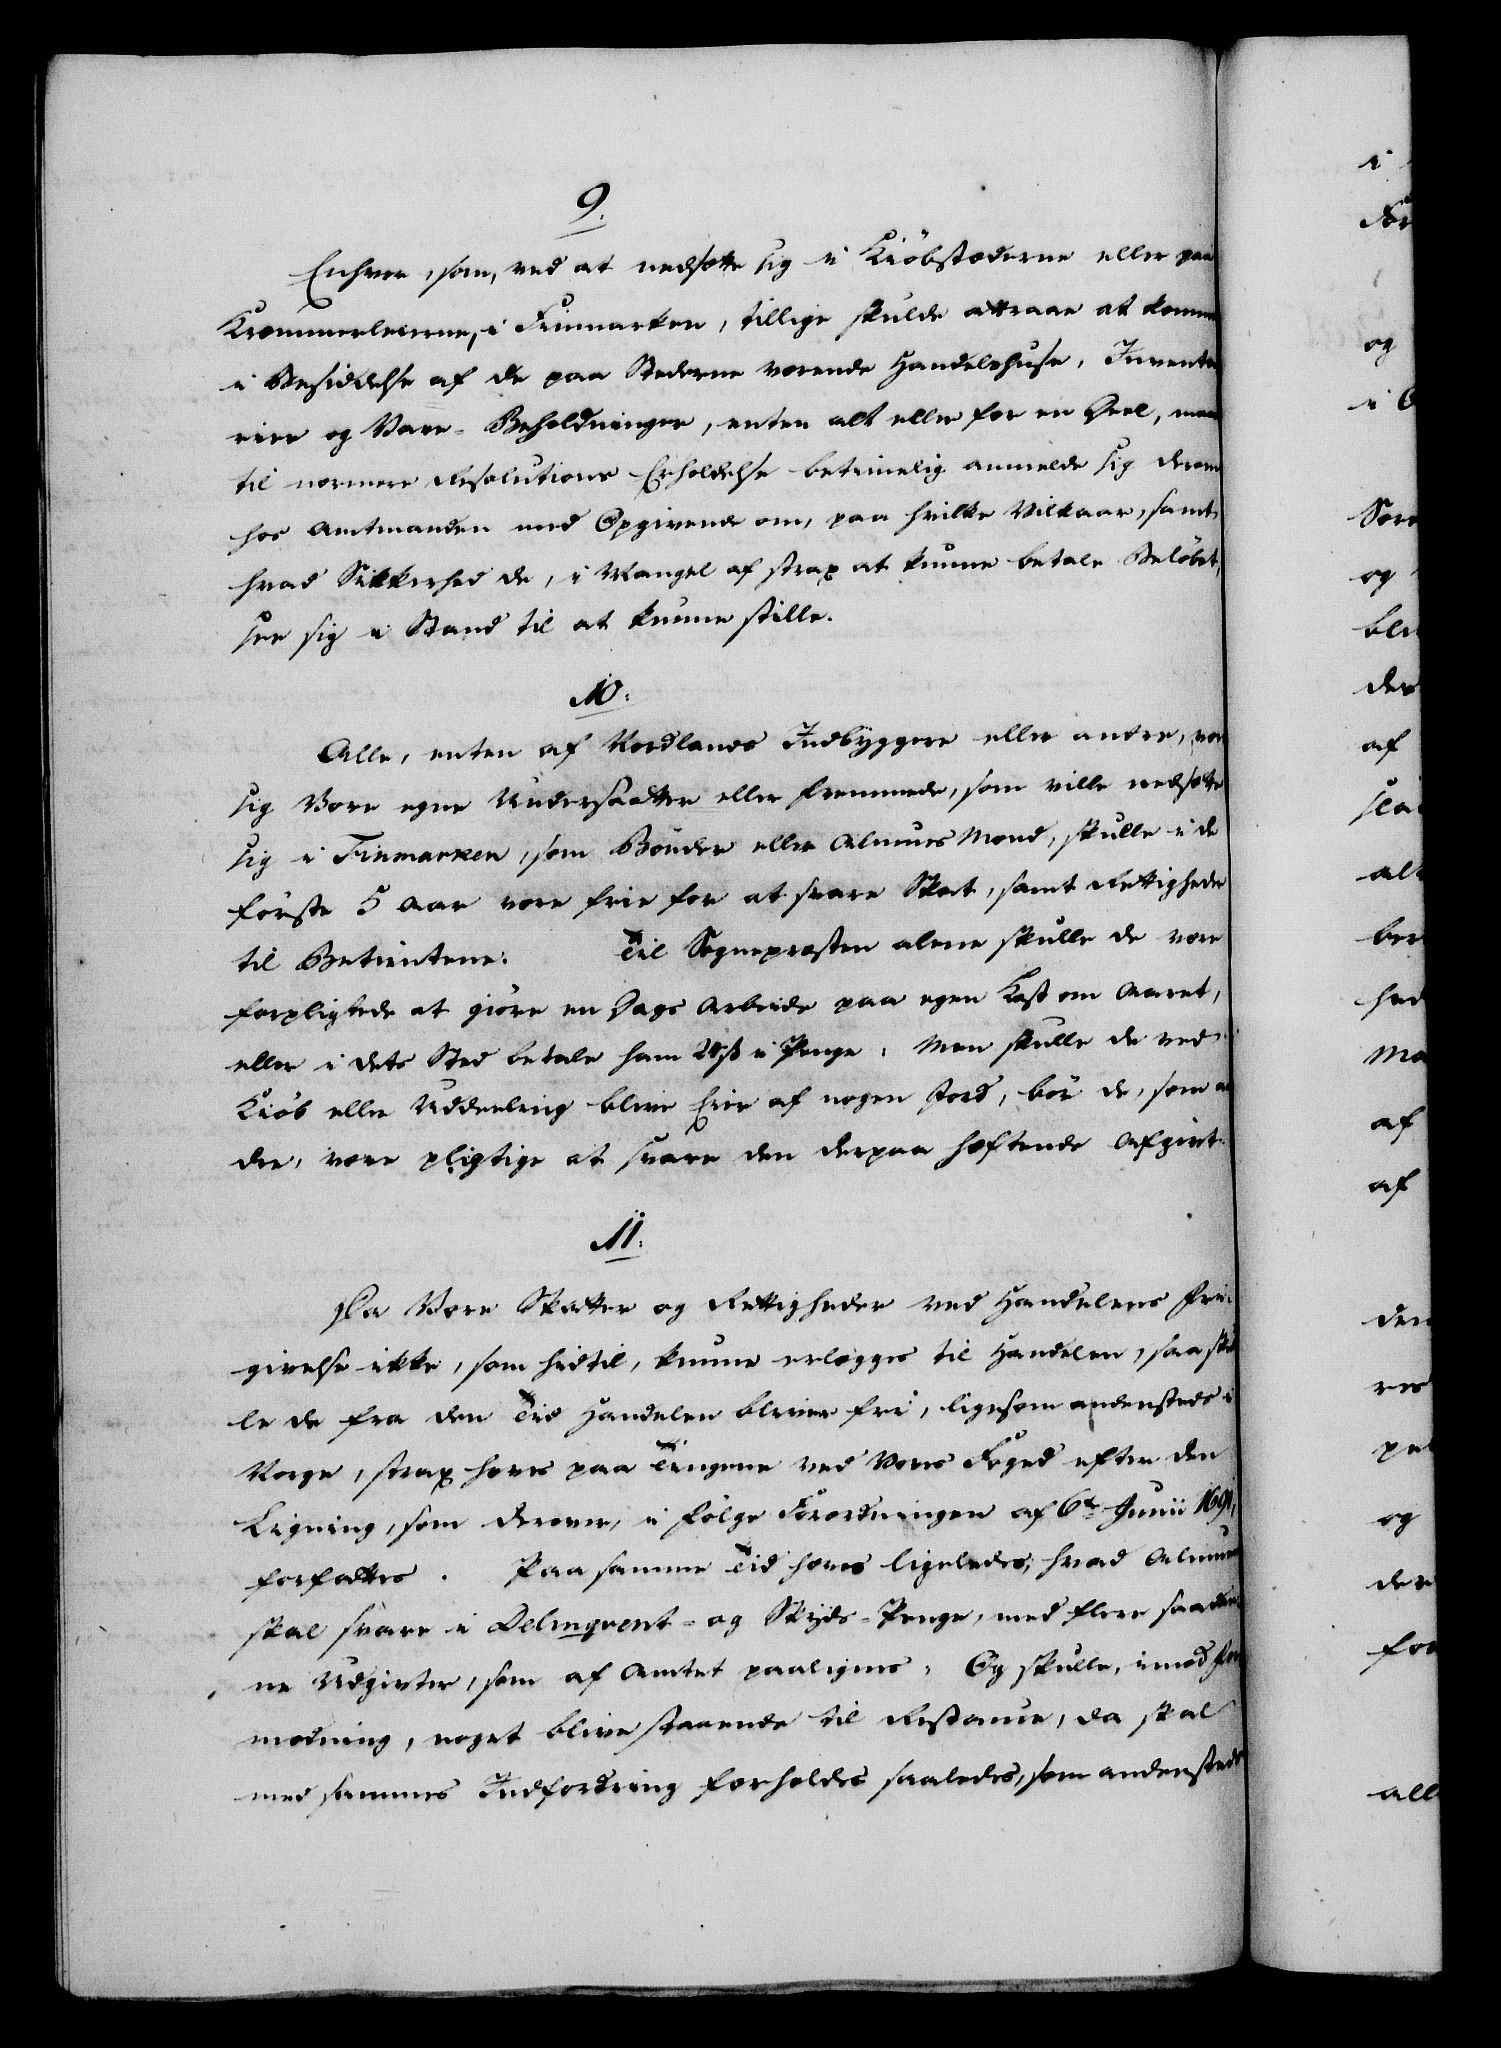 9.
Enhver, som, ved at nedsætte sig i Kiöbstæderne eller paa
Kræmmerleierne, i Finmarken, tillige skulde attraae at komme
i Besiddelse af de paa Stederne værende Handelshuse, Inventa
rier og Vare-Beholdninger, enten alt eller for en Deel, maa
til nærmere Resolutions Erholdelse betimelig anmelde sig derom
hos Amtmanden med Opgivende om, paa hvilke Vilkaar, samt
hvad Sikkerhed de, i Mangel af strax at kunne betale Belöbet,
see sig i Stand til at kunne stille.
10.
Alle, enten af Nordlands Indbyggere eller andre, være
sig Vore egne Undersaatter eller fremmede, som ville nedsætte
sig i Finmarken, som Bönder eller Almues Mænd, skulle i de
förste 5 Aar være frie for at svare Skat, samt Rettigheder
til Betientene. Til Sognepræsten alene skulle de være
forpligtede at giöre en Dags Arbeide paa egen Kost om Aaret,
eller i dets Sted betale ham 24 ß i Penge. Men skulle de ved
Kiöb eller Uddeeling blive Eier af nogen Jord, bör de, som an
dre, være pligtige at svare den derpaa hæftende Afgivt.
11.
Da Vore Skatter og Rettigheder ved Handelens Frie-
givelse ikke, som hidtil, kunne erlægges til Handelen, saa skul
le de fra den Tid Handelen bliver fri, ligesom andensteds i
Norge, strax hæves paa Tingene ved Vores Foged efter den
Ligning, som derover, i fölge Forordningen af 6te Junii 1691,
forfattes. Paa samme Tid hæves ligeledes, hvad Almuen
skal svare i Delinqvent- og Skyds-Penge, med flere saadan-
ne Udgivter, som af Amtet paalignes. Og skulle, imod For
modning, noget blive staaende til Restance, da skal
med sammes Indfordring forholdes saaledes, som andensteds